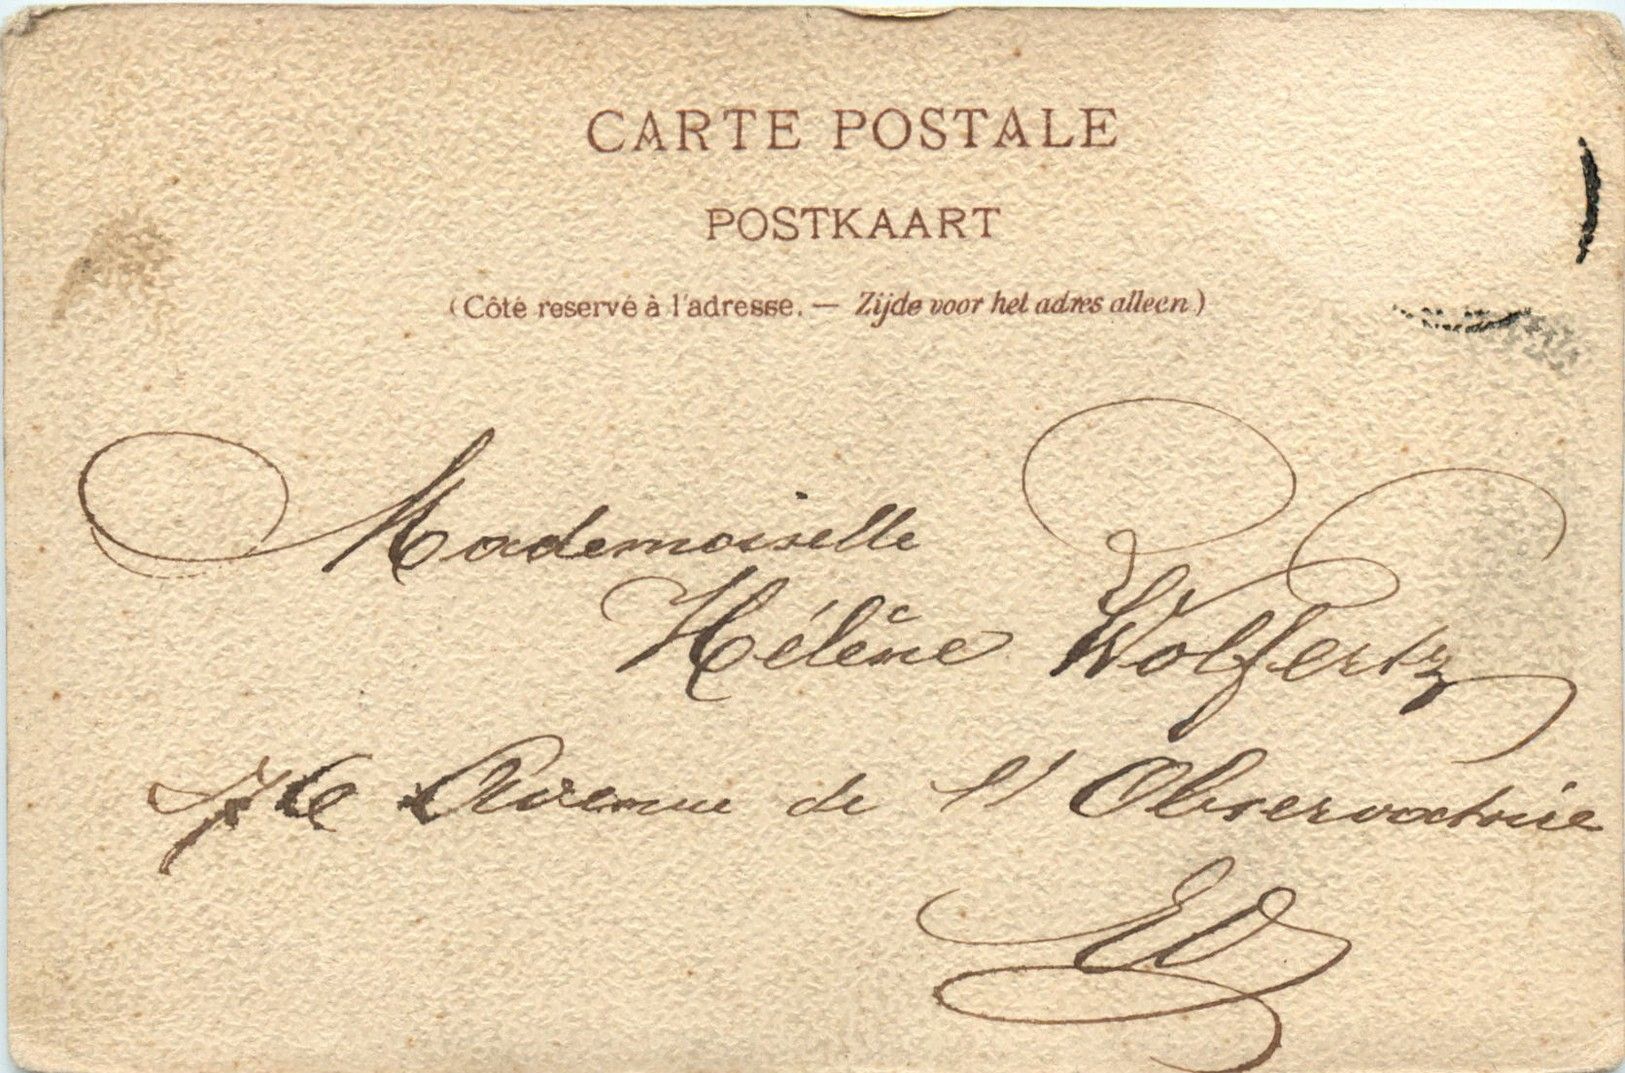 CARTE POSTALE
POSTKAART
(Côté reservé à l'adresse. — Zijde voor het adres alleen)
Mademoiselle
Hélène Wolfertz
76 Avenue de l'Observatoire